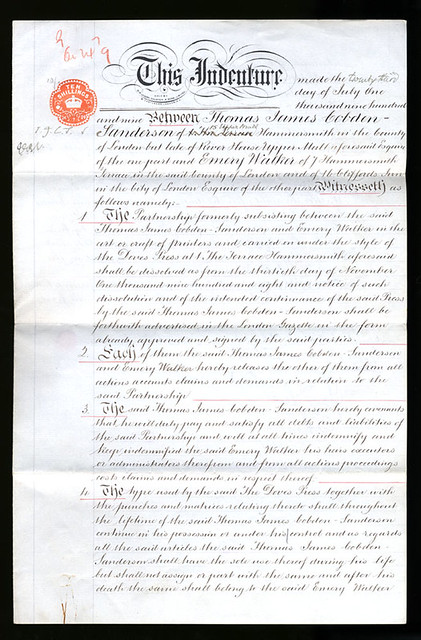 This Indenture made the twenty third
day of July One
thousand nine hundred
and nine Between Thomas James Cobden-
Sanderson of 15 Upper Mall Hammersmith in the County
of London but late of River House Upper Mall aforesaid Esquire
of the one part and Emery Walker of 7 Hammersmith
Terrace in the said County of London and of 16 Cliffords Inn
in the City of London Esquire of the other part Witnesseth as
follows namely:-
1. The Partnership formerly subsisting between the said
Thomas James Cobden-Sanderson and Emery Walker in the
art or craft of printers and carried on under the style of
the Doves Press at 1. The Terrace Hammersmith aforesaid
shall be dissolved as from the thirtieth day of November
One thousand nine hundred and eight and notice of such
dissolution and of the intended continuance of the said Press
by the said Thomas James Cobden-Sanderson shall be
forthwith advertised in the London Gazette in the form
already approved and signed by the said parties.
2. Each of them the said Thomas James Cobden-Sanderson
and Emery Walker hereby releases the other of them from all
actions accounts claims and demands in relation to the
said Partnership
3. The said Thomas James Cobden-Sanderson hereby covenants
that he will duly pay and satisfy all debts and liabilities of
the said Partnership and will at all times indemnify and
keep indemnified the said Emery Walker his heirs executors
or administrators therefrom and from all actions proceedings
costs claims and demands in respect thereof
4. The type used by the said The Doves Press together with
the punches and matrices relating thereto shall throughout
the lifetime of the said Thomas James Cobden-Sanderson
continue in his possession or under his control and as regards
all the said articles the said Thomas James Cobden-
Sanderson shall have the sole use thereof during his life
but shall not assign or part with the same and after his
death the same shall belong to the said Emery Walker
TEN
SHILLINGS